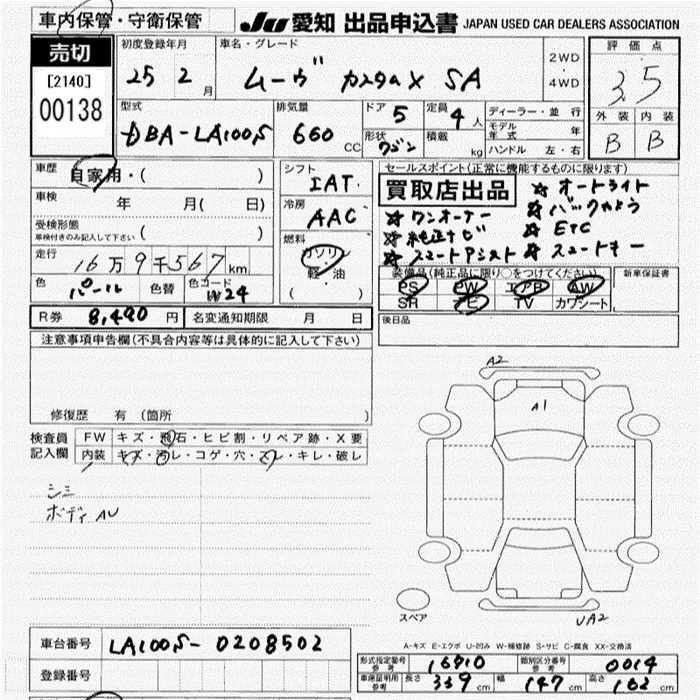 車内保管・守衛保管 JU 愛知 出品申込書 JAPAN USED CAR DEALERS ASSOCIATION
売切
[2140]
00138
初度登録年月 25 2 月
車名・グレード ムーヴ カスタム X SA
2WD ・ 4WD
評価点 3.5
外装 内装
B B
型式 DBA-LA100S
排気量 660 CC
ドア 5 定員 4 人
形状 ワゴン 積載 kg
ディーラー・並行
モデル年式 年
ハンドル 左・右
車歴 自家用・( )
車検 年 月( 日)
受検形態 車検付きのみ記入して下さい ( )
走行 16万9千567km
色 パール 色替 色コード W24
R券 8,490 円 名変通知期限 月 日
シフト IAT
冷房 AAC
燃料 ガソリン ・ 軽・油 ( )
セールスポイント(正常に機能するものに限ります)
買取店出品
☆ オートライト
☆ ワンオーナー ☆ バックカメラ
☆ 純正ナビ ☆ ETC
☆ スマートアシスト ☆ スマートキー
装備品(純正品に限り○をつけてください) 新車保証書
PS PW エアB AW
SR ナビ TV カワシート
後日品
注意事項申告欄(不具合内容等は具体的に記入して下さい)
修復歴 有 (箇所 )
検査員記入欄
FW キズ・飛石・ヒビ割・リペア跡・X要
内装 キズ・汚レ・コゲ・穴・スレ・キレ・破レ
シミ
ボディ AU
A2
A1
スペア
UA2
A-キズ E-エクボ U-凹み W-補修跡 S-サビ C-腐食 XX-交換済
車台番号 LA100S-0208502
登録番号
形式指定番号 参考 16910 類別区分番号 参考 0014
車庫証明用 参考 長さ 339 cm 幅 147 cm 高さ 162 cm